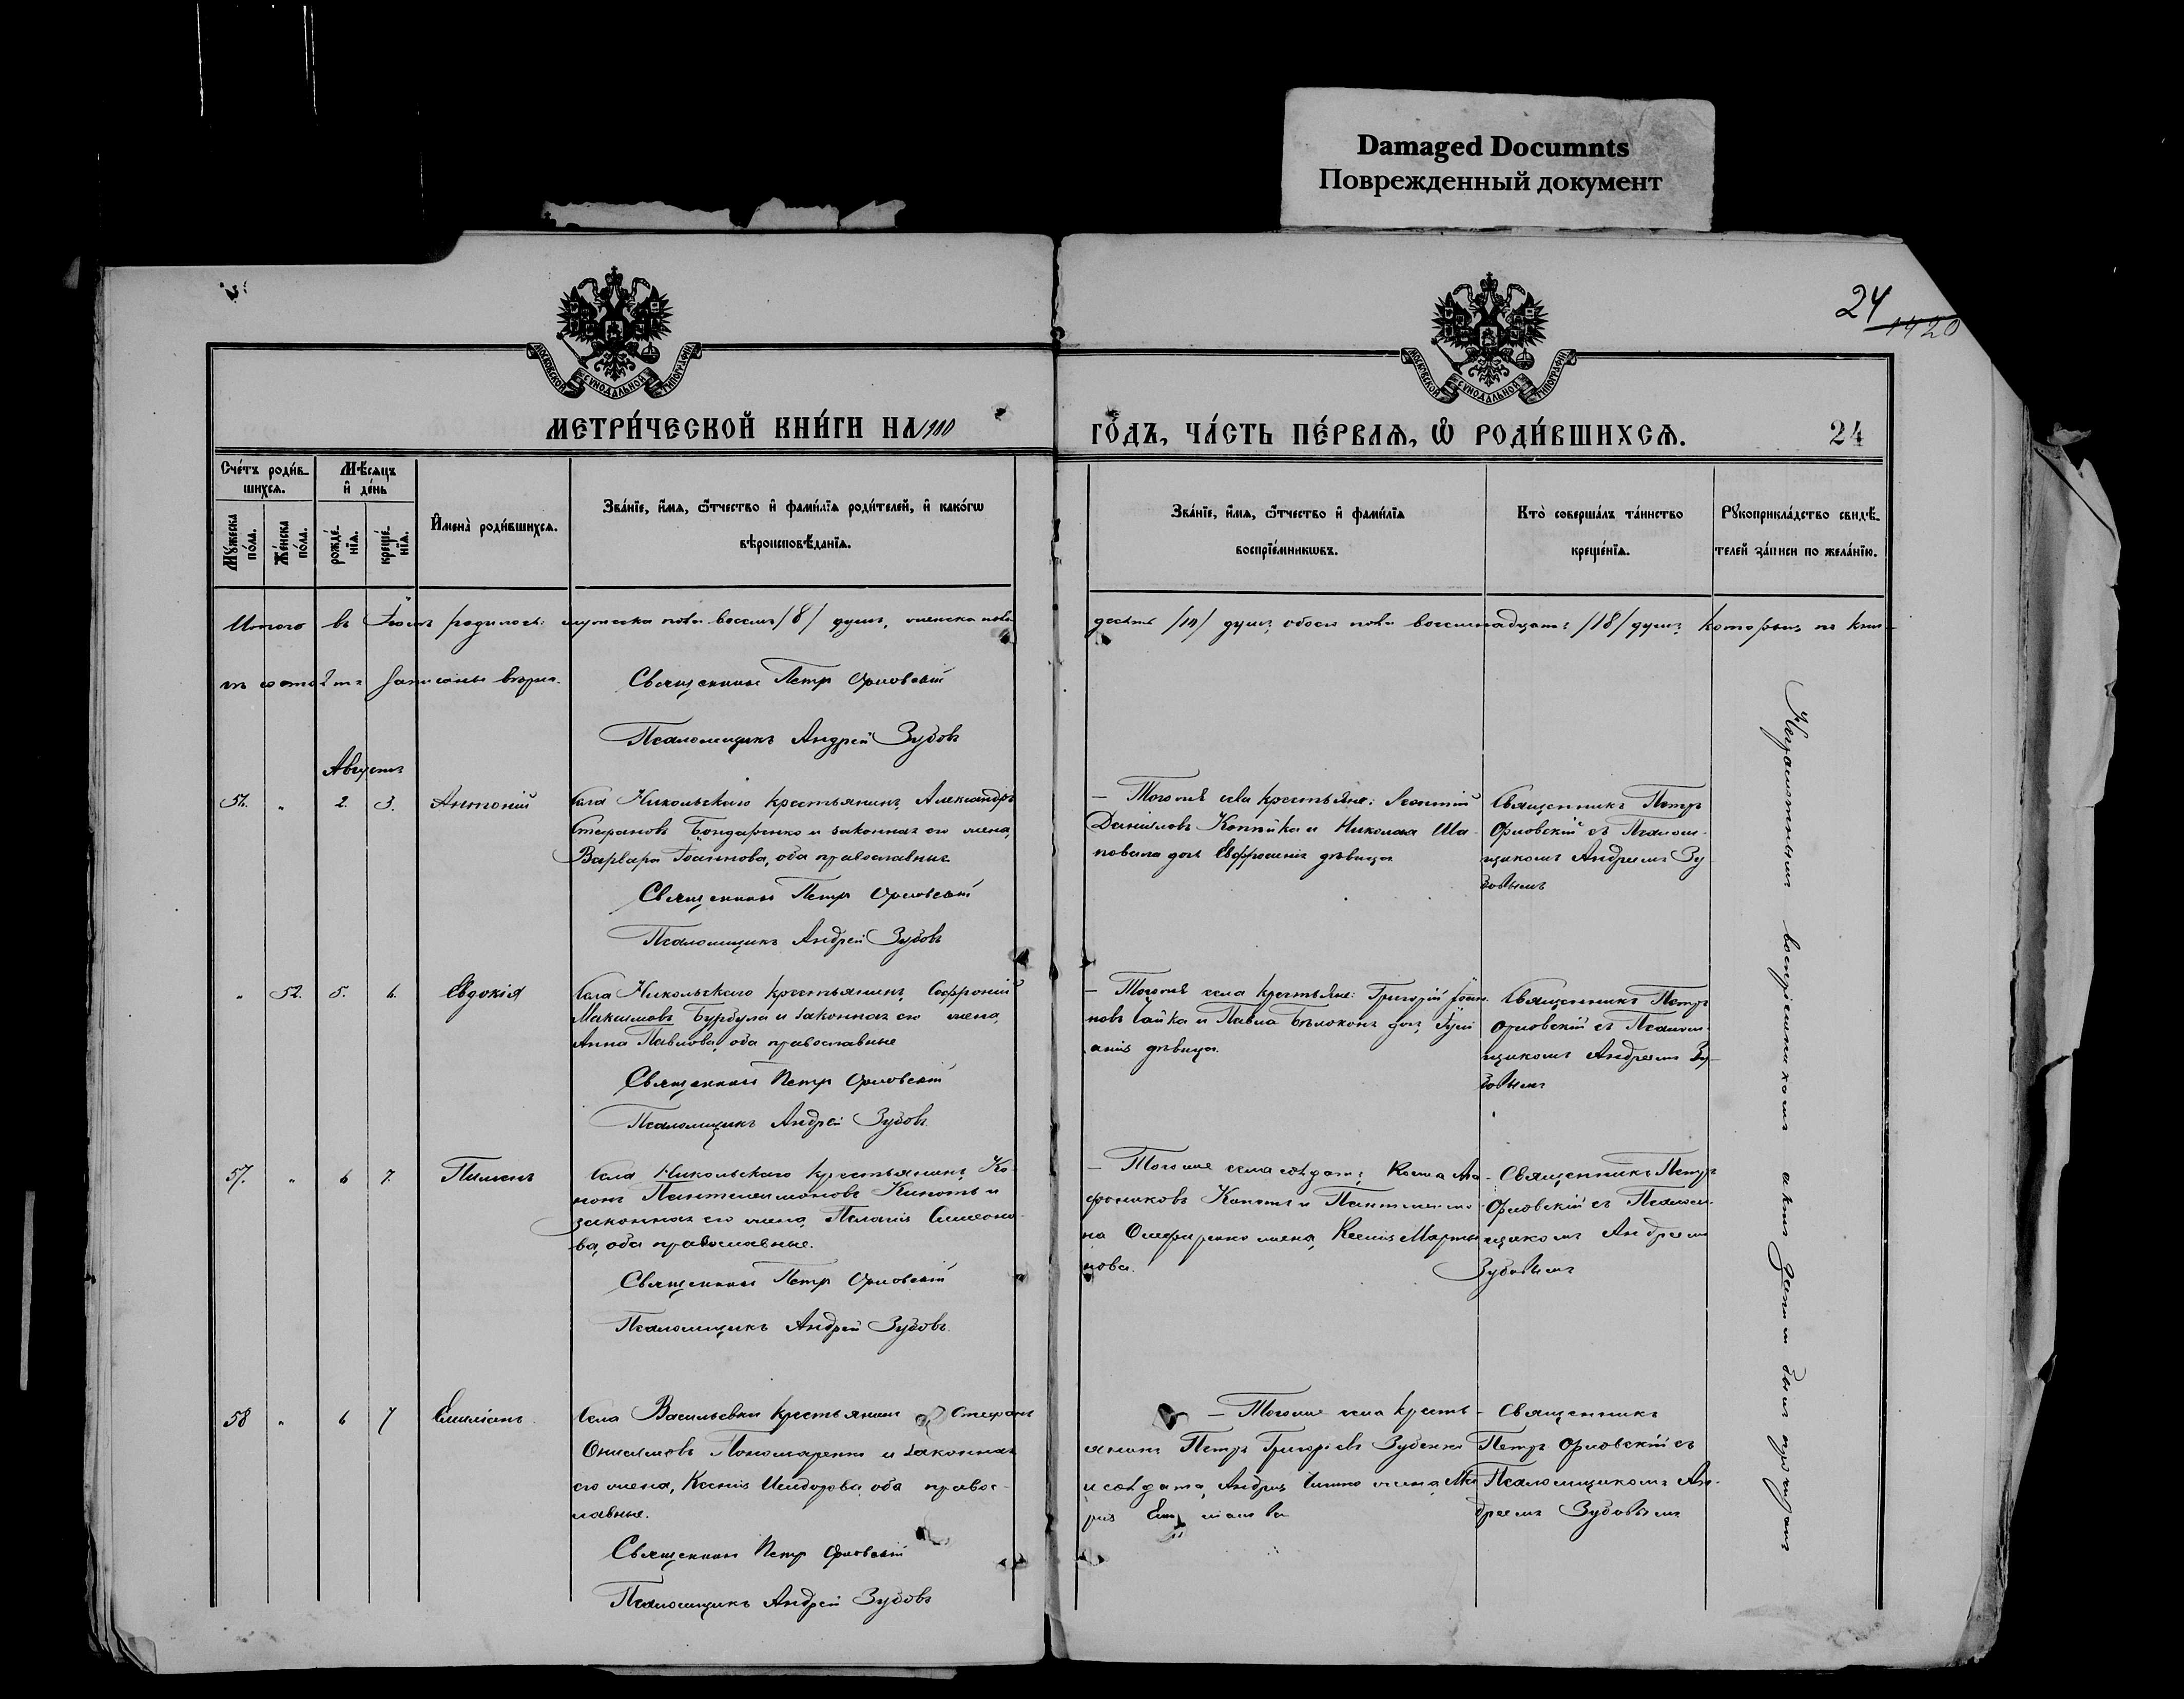 Damaged Documnts
Поврежденный документ
24
1420
МОСКОВСКОЙ СУНОДАЛЬНОЙ ТИПОГРАФІИ
МОСКОВСКОЙ СУНОДАЛЬНОЙ ТИПОГРАФІИ
МЕТРИ́ЧЕСКОЙ КНИ́ГИ НА 1900
ГО́ДЪ, ЧА́СТЬ ПЕ́РВАѦ, Ѽ РОДИ́ВШИХСѦ.
24
Сче́тъ роди́в-
шихсѧ.
Мѣ́сѧцъ
и҆ де́нь
Мꙋ́жеска по́ла.
Же́нска по́ла.
рожде́нїѧ.
креще́нїѧ.
И҆мена̀ роди́вшихсѧ.
Зва́нїе, и҆́мѧ, ѻ҆́тчество и҆ фами́лїѧ роди́телей, и҆ како́гѡ
вѣроисповѣ́данїѧ.
Зва́нїе, и҆́мѧ, ѻ҆́тчество и҆ фами́лїѧ
воспрїе́мникѡвъ.
Кто̀ соверша́лъ та́инство
креще́нїѧ.
Рꙋкоприкла́дство свидѣ́-
телей за́писи по жела́нїю.
Итого въ Іюлѣ родилось: мужеска пола восемь /8/ душъ, женска пола
десять /10/ душъ, обоего пола восемнадцать /18/ душъ,
записаны вѣрно.
Священникъ Петръ Орловскій
Псаломщикъ Андрей Зубовъ
Августъ
56. " 2. 3. Антоній
Села Никольскаго крестьянинъ, Александръ
Стефановъ Бондаренко и законная его жена,
Варвара Іоаннова, оба православные
Священникъ Петръ Орловскій
Псаломщикъ Андрей Зубовъ
– Того же села крестьяне: Леонтій
Даніиловъ Коппйка и Николая Ша-
повала дочь Евфросинія дѣвица
Священникъ Петръ
Орловскій съ Псалом-
щикомъ Андреемъ Зу-
бовымъ
" 52. 5. 6. Евдокія
Села Никольскаго крестьянинъ, Софроній
Максимовъ Бурбула и законная его жена,
Анна Павлова, оба православные
Священникъ Петръ Орловскій
Псаломщикъ Андрей Зубовъ
– Того же села крестьяне: Григорій Іоан-
новъ Чайка и Павла Бѣлоконь дочь,
дѣвица.
Священникъ Петръ
Орловскій съ Псалом-
щикомъ Андреемъ Зу-
бовымъ
57. " 6 7. Пименъ
Села Никольскаго крестьянинъ, Ко-
нонъ Пантелеимоновъ Кипоть и
законная его жена, Пелагія Симеоно-
ва, оба православные.
Священникъ Петръ Орловскій
Псаломщикъ Андрей Зубовъ.
– Того же села солдатъ, Косма
Кипоть и Пантелеимо-
на Олефиренко жена, Ксенія Марты-
нова.
Священникъ Петръ
Орловскій съ Псалом-
щикомъ Андреемъ
Зубовымъ
58 " 6 7 Емиліанъ.
Села Васильевки крестьянинъ Стефанъ
Онисимовъ Пономаренко и законная
его жена, Ксенія Исидорова, оба правос-
лавные.
Священникъ Петръ Орловскій
Псаломщикъ Андрей Зубовъ
– Того же села кресть-
янинъ Петръ Григорьевъ Зубенко
и солдата, Андрея жена, Ма-
рія
Священникъ
Петръ Орловскій съ
Псаломщикомъ Ан-
дреемъ Зубовымъ
Неграмотнымъ воспріемникамъ